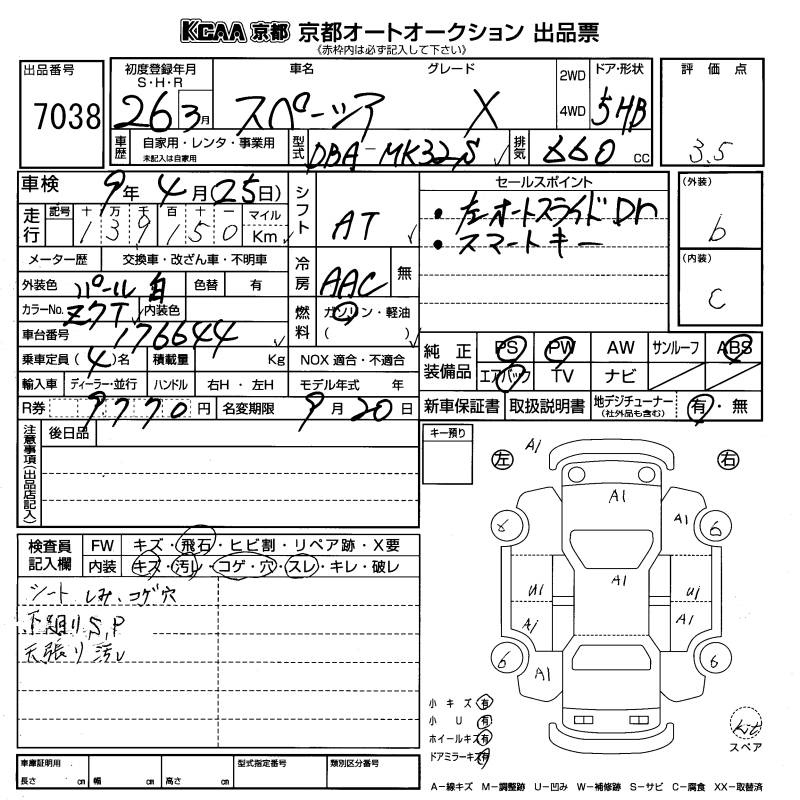 KCAA 京都 京都オートオークション 出品票
《赤枠内は必ず記入して下さい》
出品番号
7038
初度登録年月
S・H・R
26 3月
車名 グレード
スペーシア X
2WD
4WD
ドア・形状
5HB
評価点
3.5
車歴
自家用・レンタ・事業用
未記入は自家用
型式
DBA-MK32S
排気
660 CC
車検
9年 4月(25日)
走行
記号 十 万 千 百 十 一
139150
マイル
Km
シフト
AT
セールスポイント
・左オートスライドDr
・スマートキー
(外装)
b
(内装)
C
メーター歴 交換車・改ざん車・不明車
外装色 パール白 色替 有
カラーNo. Z7T 内装色
冷房
AAC 無
燃料
ガソリン・軽油
( )
車台番号 176644
乗車定員(4)名 積載量 Kg NOX 適合・不適合
輸入車 ディーラー・並行 ハンドル 右H・左H モデル年式 年
R券 9770円 名変期限 9月20日
純正装備品
PS PW AW サンルーフ ABS
エアバック TV ナビ
新車保証書 取扱説明書 地デジチューナー
(社外品も含む)
有・無
注意事項(出品店記入)
後日品
キー預り
検査員記入欄
FW キズ・飛石・ヒビ割・リペア跡・X要
内装 キズ・汚レ・コゲ・穴・スレ・キレ・破レ
シート しみ、コゲ穴
下廻り S,P
天張り汚レ
左 右
A1
A1
A1
6
A1
U1
U1
A1
A1
6
A1
6
小キズ 有
小U 有
ホイールキズ 有
ドアミラーキズ 有
kit
スペア
車庫証明用
長さ cm 幅 cm 高さ cm
型式指定番号
類別区分番号
A－線キズ M－調整跡 U－凹み W－補修跡 S－サビ C－腐食 XX－取替済